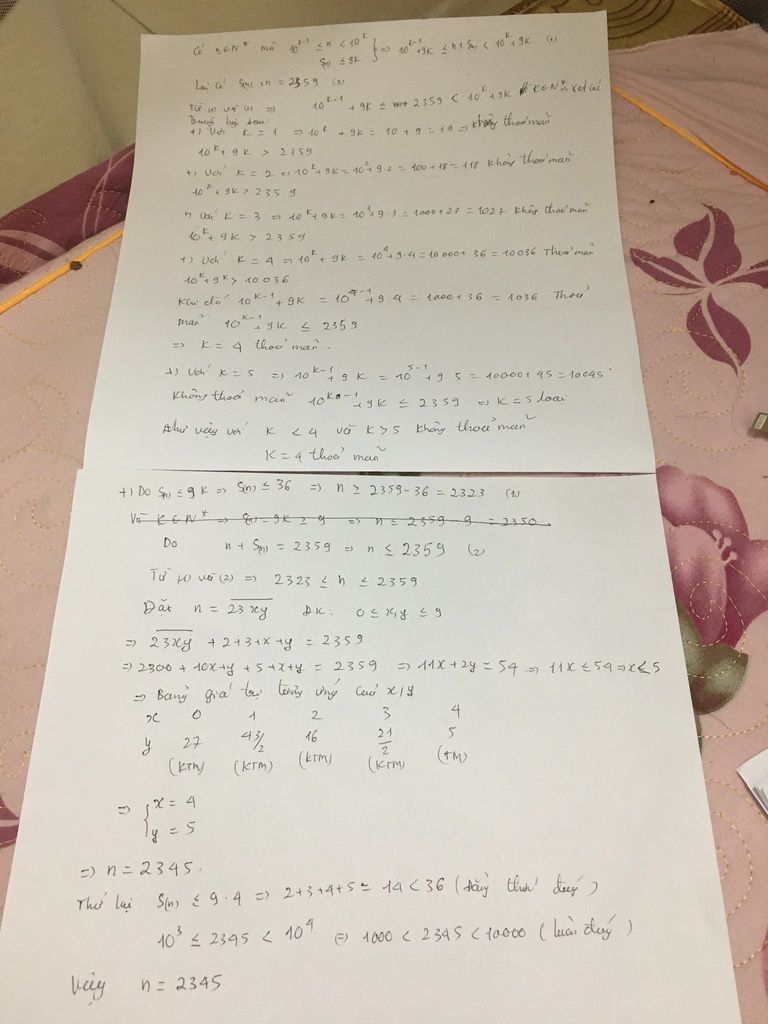 Có n∈N* mà 10^{k-1} ≤ n < 10^k
S(n) ≤ 9k } ⇒ 10^{k-1}+9k ≤ n+S(n) < 10^k+9k (1)
Lại có S(n) + n = 2359 (2)
Từ (1) và (2) ⇒ 10^{k-1} + 9k ≤ 2359 < 10^k + 9k K∈N* xét các
trường hợp sau:
+) Với K = 1 ⇒ 10^k + 9k = 10 + 9 = 19 ⇒ không thoả mãn
10^k + 9k > 2359.
+) Với K = 2 ⇒ 10^k+9k = 10^2+9.2 = 100+18 = 118 không thoả mãn
10^k+9k > 2359
+) Với K = 3 ⇒ 10^k+9k = 10^3+9.3 = 1000+27 = 1027 không thoả mãn
10^k+9k > 2359
+) Với K = 4 ⇒ 10^k + 9k = 10^4+9.4 = 10000 + 36 = 10036 Thoả mãn
10^k+9k > 10036.
Khi đó 10^{k-1}+9k = 10^{4-1}+9.4 = 1000+36 = 1036 Thoả
mãn 10^{k-1}+9k ≤ 2359
⇒ K = 4 thoả mãn.
+) Với K = 5 ⇒ 10^{k-1}+9k = 10^{5-1}+9.5 = 10000+45 = 10045.
Không thoả mãn 10^{k-1}+9k ≤ 2359 ⇒ K = 5 loại
Như vậy với K < 4 và K > 5 không thoả mãn
K = 4 thoả mãn
+) Do S(n) ≤ 9k ⇒ S(n) ≤ 36 ⇒ n ≥ 2359-36 = 2323 (1)
Và K∈N* ⇒ S(n) = 9k ≥ 9 ⇒ n ≤ 2359-9 = 2350.
Do n + S(n) = 2359 ⇒ n ≤ 2359 (2)
Từ (1) và (2) ⇒ 2323 ≤ n ≤ 2359
Đặt n = \overline{23xy} ĐK: 0 ≤ x,y ≤ 9
⇒ \overline{23xy} + 2+3+x+y = 2359
⇒ 2300 + 10x+y + 5+x+y = 2359 ⇒ 11x+2y = 54 ⇒ 11x ≤ 54 ⇒ x<5
⇒ Bảng giá trị tương ứng của x,y
x 0 1 2 3 4
y 27 43/2 16 21/2 5
(KTM) (KTM) (KTM) (KTM) (TM)
⇒ { x = 4
y = 5
⇒ n = 2345.
Thử lại S(n) ≤ 9.4 ⇒ 2+3+4+5 = 14 < 36 (đẳng thức đúng)
10^3 ≤ 2345 < 10^4 ⇔ 1000 < 2345 < 10000 (luôn đúng)
Vậy n = 2345